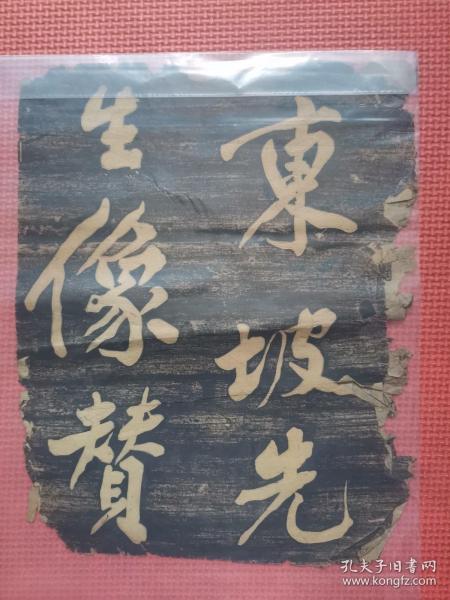 東坡先
生像賛
孔夫子旧书网
www.kongfz.com